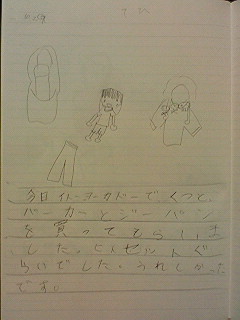 今日イトーヨーカドーで、くつと、
パーカーとジーパン
を買ってもらいま
した。
らいでした。うれしかった
です。